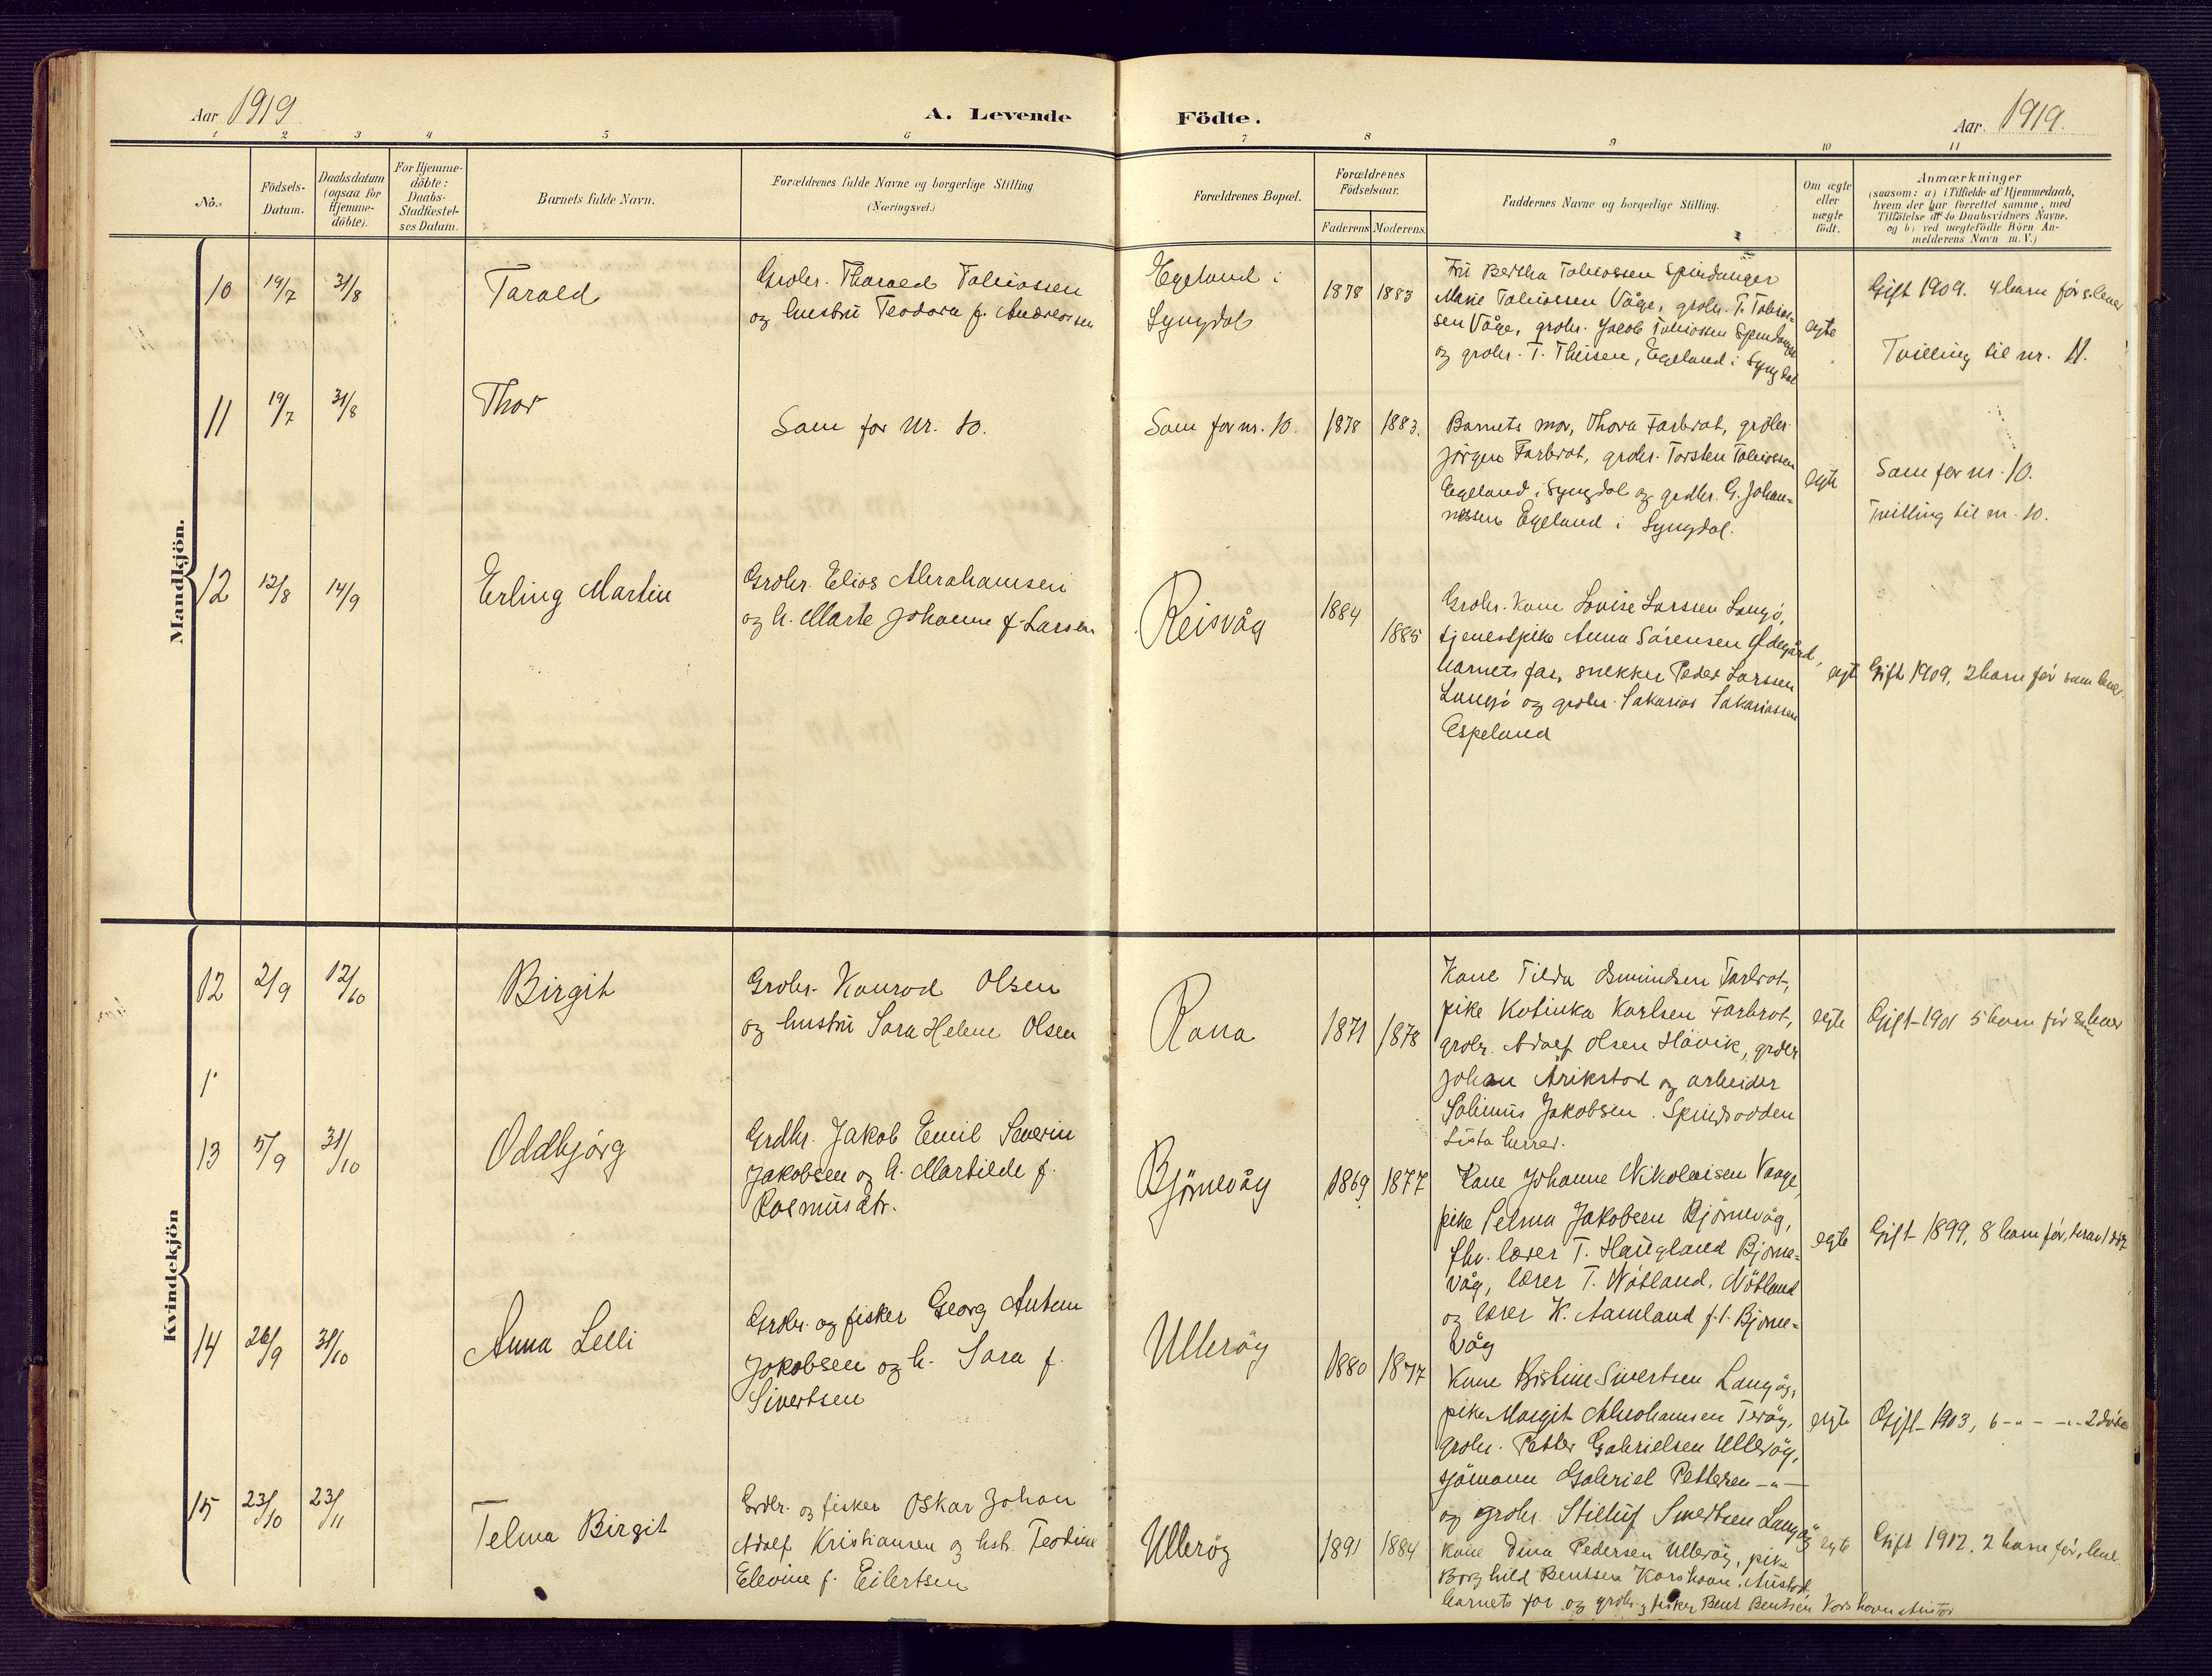 Aar 1919
A. Levende
Födte.
Aar. 1919.
1 2 3 4 5 6 7 8 9 10 11
No.
Födsels-
Datum.
Daabsdatum
(ogsaa for
Hjemme-
döbte).
For Hjemme-
döbte:
Daabs-
Stadfæstel-
ses Datum.
Barnets fulde Navn.
Forældrenes fulde Navne og borgerlige Stilling
(Næringsvei.)
Forældrenes Bopæl.
Forældrenes
Födselsaar.
Faderens Moderens.
Faddernes Navne og borgerlige Stilling.
Om ægte
eller
uægte
födt.
Anmærkninger
(saasom: a) i Tilfælde af Hjemmedaab,
hvem der har forrettet samme, med
Tilföielse af to Daabsvidners Navne.
og b) ved uægtefödte Börn An-
melderens Navn m. V.)
Mandkjön.
10 19/7 31/8
Tarald
Grdbr. Tharald Tobiassen
og hustru Teodora f. Andreassen
Egeland i
Lyngdal
1878 1883
Fru Bertha Tobiassen Spindanger
Marie Tobiassen Våge, grdbr. T. Tobias-
sen Våge, grdbr. Jacob Tobiassen Spindanger
og grdbr. T. Theisen, Egeland i Lyngdal
egte
Gift 1909. 4 barn før s. lever
Tvilling til nr. 11.
11 19/7 31/8
Thor
Som for nr. 10.
Som for nr. 10.
1878 1883.
Barnets mor, Thora Farbrot, grdbr.
Jörgen Farbrot, grdbr. Torsten Tobiassen
Egeland i Lyngdal og grdbr. G. Johan-
nessen Egeland i Lyngdal.
egte
Som for nr. 10.
Tvilling til nr. 10.
12 12/8 14/9
Erling Martin
Grdbr. Elias Abrahamsen
og h. Marte Johanne f. Larsen
Reisvåg
1884 1885
Grdbr. kone Lovise Larssen Langö,
tjenestpike Anna Sörensen Ødegård,
barnets far, snekker Peder Larssen
Langö og grdbr. Sakarias Sakariassen
Espeland
egte
Gift 1909, 2 barn før som lever.
Kvindekjön
12 2/9 12/10
Birgit
Grdbr. Konrad Olsen
og hustru Sara Helene Olsen
Rona
1871 1878
Kone Tilda Osmundsen Farbrot,
pike Kotinka Karlsen Farbrot,
grdbr. Adolf Olsen Hövik, grdbr
Johan Årikstad og arbeider
Salimus Jakobsen. Spindsodden
Lista herrer.
egte
Gift 1901 5 barn før som lever
1
13 5/9 31/10
Oddbjörg
Grdbr. Jakob Emil Severin
Jakobsen og h. Martilde f.
Rasmusdtr.
Björnevåg
1869 1877
Kone Johanne Nikolaisen Vaage,
pike Selma Jakobsen Björnevåg,
fhv. lærer T. Haugland Björne-
våg, lærer T. Nötland, Nötland
og lærer K. Aamland f.t. Björne-
våg
egte
Gift 1899, 8 barn før, herav 1 död
14 26/9 31/10
Anna Lelli
Grdbr. og fisker Georg Anton
Jakobsen og h. Sara f.
Sivertsen
Ulleröy
1880 1877
Kone Bistine Sivertsen Langöy,
pike Margit Abrahamsen Teröy,
grdbr. Petter Gabrielsen Ulleröy,
sjömann Gabriel Pettersen - " -
og grdbr. Sivertsen Langöy
egte
Gift 1903, 6 - " - - " - 2 döde
15 23/10 23/11
Telma Birgit
Grdbr. og fisker Oskar Johan
Adolf Kristiansen og hst. Teodine
Elevine f. Eilertsen
Ulleröy
1891 1884
Kone Dina Pedersen Ulleröy, pike
Borghild Bentsen Korshavn, Austad
barnets far og grdbr. og fisker Bent Bentsen Korshavn Austad
egte
Gift 1912, 2 barn før, lever